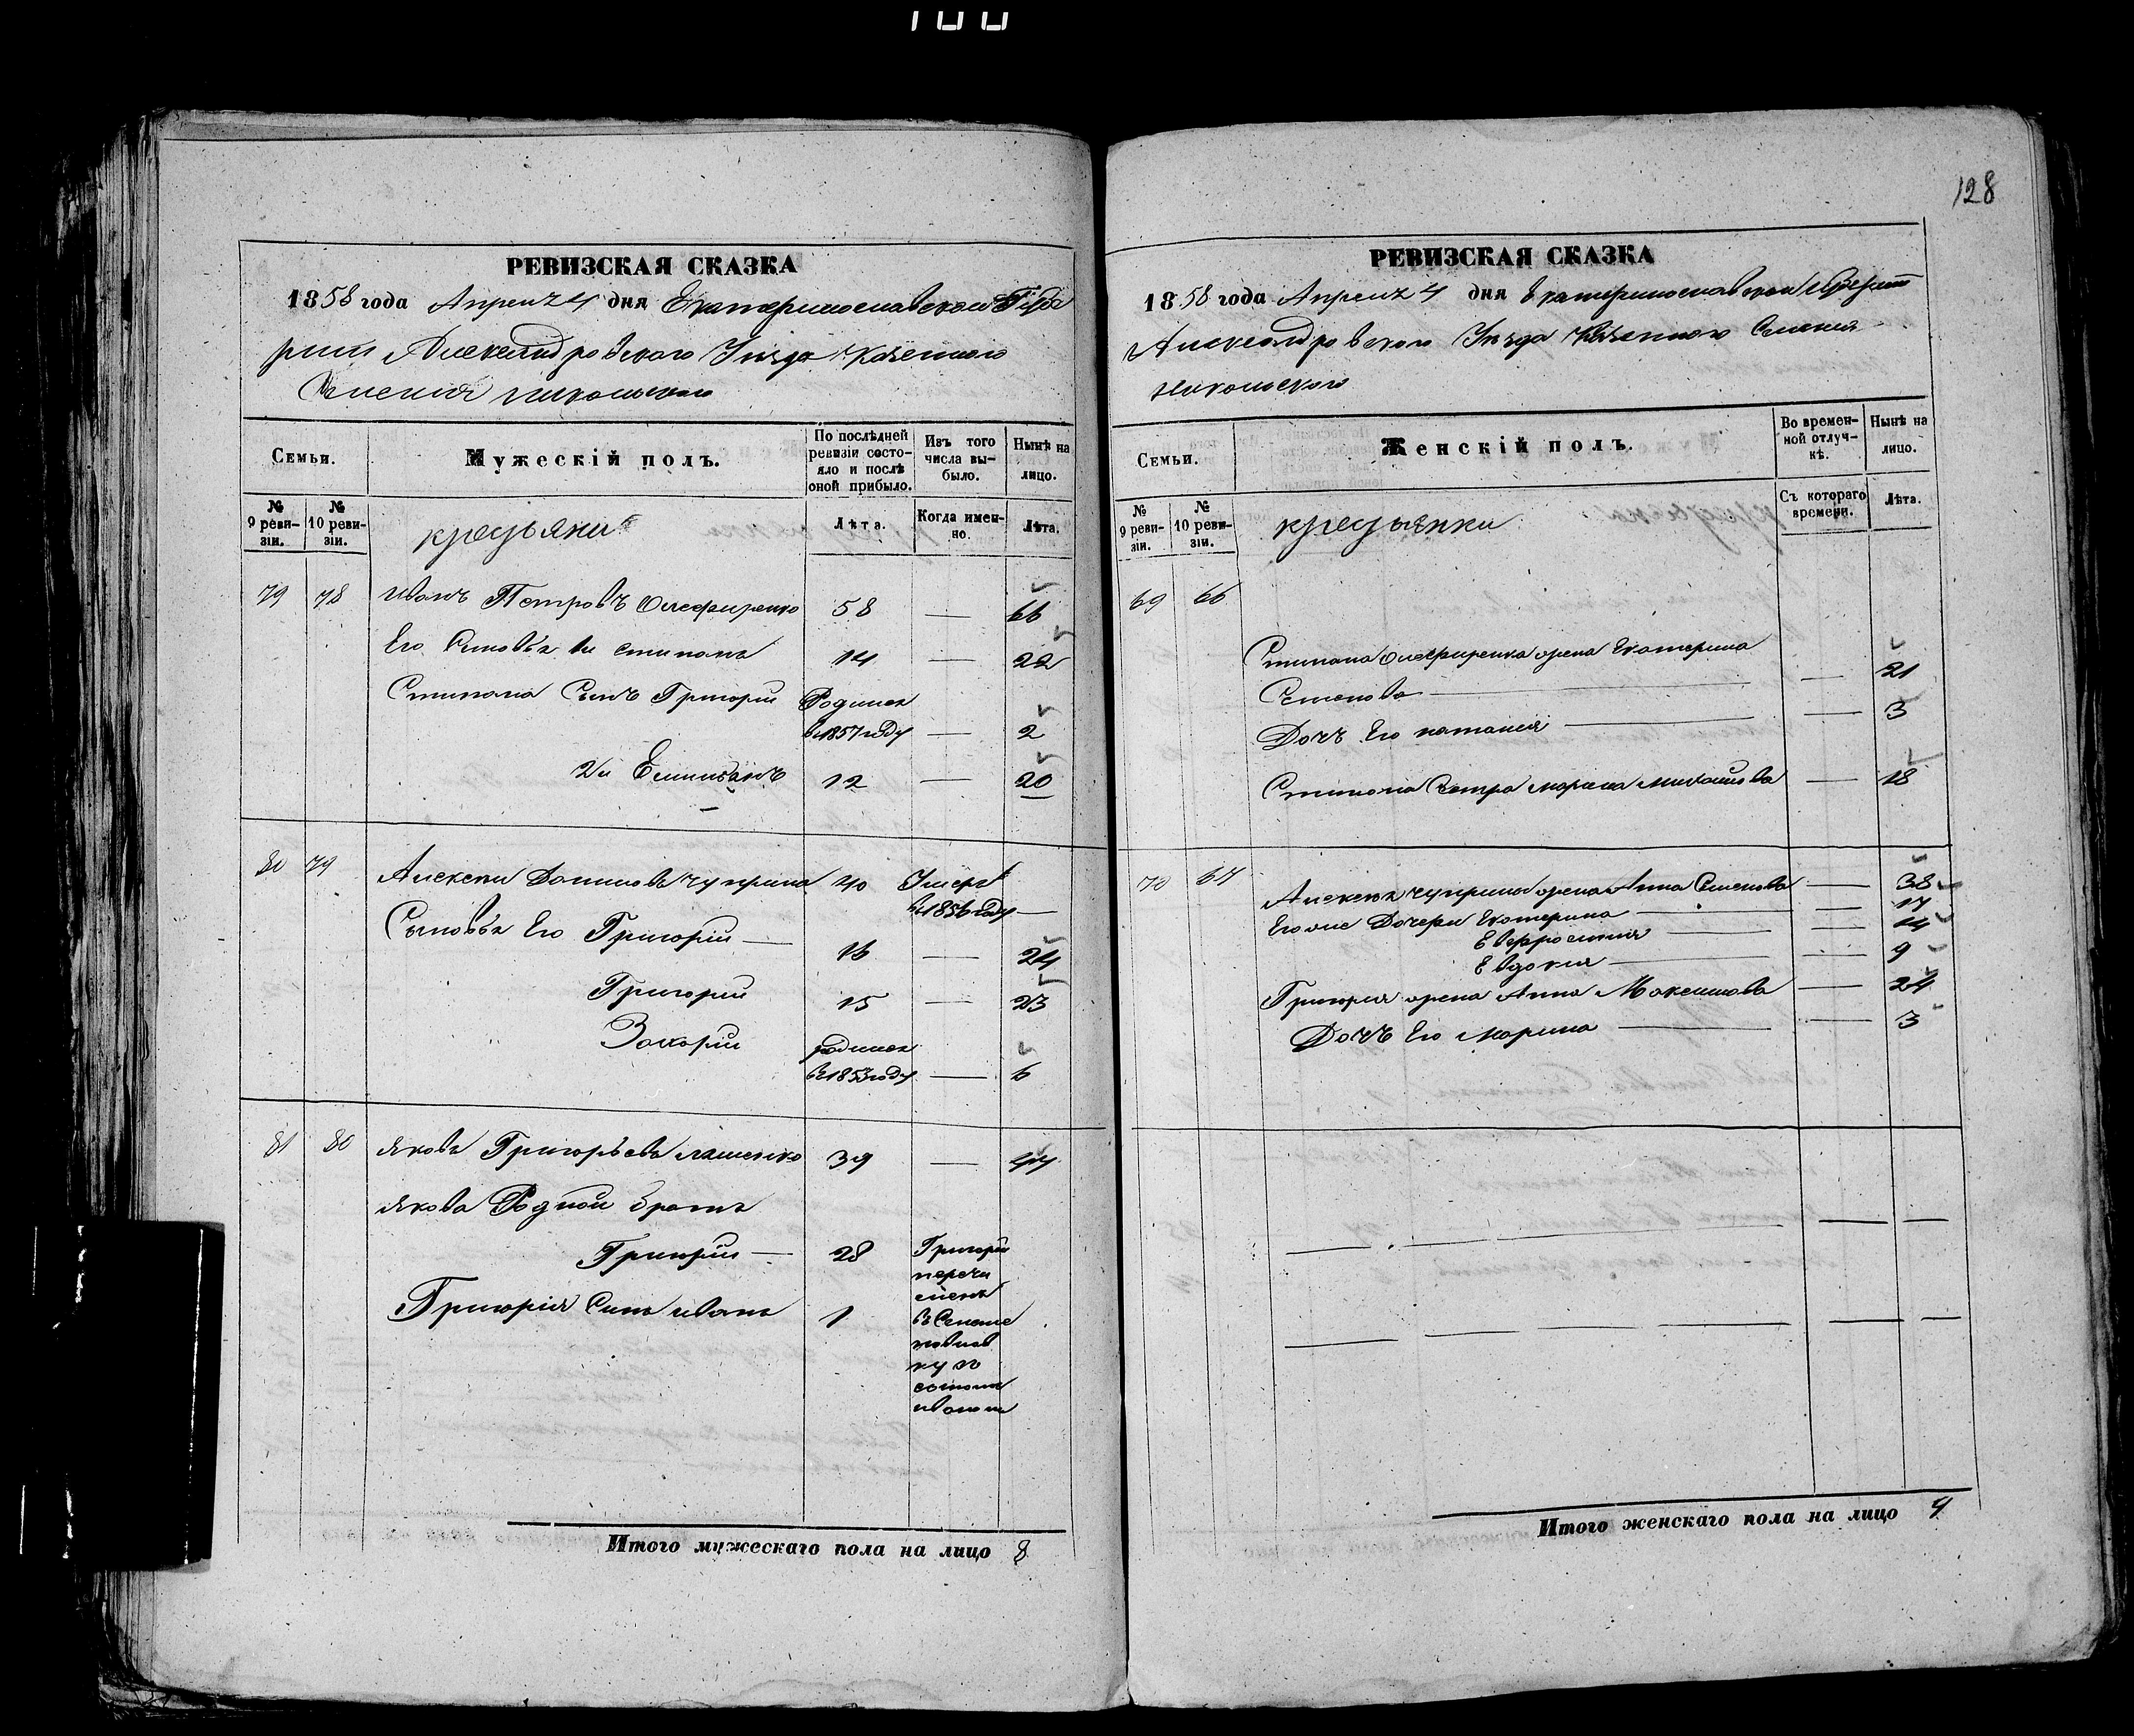 128
РЕВИЗСКАЯ СКАЗКА
1858 года Апреля 4 дня Екатеринославской Губе
рнии Александровского Уезда Казенного
Селения никольского
Семьи.
Мужескій полъ.
По послѣдней ревизіи состояло и послѣ оной прибыло.
Изъ того числа выбыло.
Нынѣ на лицо.
№ 9 ревизіи.
№ 10 ревизіи.
крестьяни
Лѣта.
Когда именно.
Лѣта.
79 78 иванъ Петровъ Олефиренко 58 — 66
Его Сыновья 1й степанъ 14 — 22
Степана Сынъ Григорий Родился
в 1857 году — 2
2й Емильянъ 12 — 20
80 79 Алексей Данилова чуприна 40 Умеръ
в 1856 году —
Сыновья Его Григорій — 16 — 24
Григорий 15 — 23
Захарий родился
въ 1853 году — 6
81 80 якова Григорьева лашенко 39 — 47
якова Родной братъ
Григорий — 28 Григорій
перечи
сленъ
Григорія Сынъ иванъ 1
въ
Итого мужескаго пола на лицо 8
РЕВИЗСКАЯ СКАЗКА
1858 года Апреля 4 дня Екатеринославской Губернии
Александровского Уезда Казенного Селения
никольского
Семьи.
Женскій полъ.
Во временной отлучкѣ.
Нынѣ на лицо.
№ 9 ревизіи.
№ 10 ревизіи.
крестьянки
Съ котораго времени.
Лѣта.
69 66
Степана олефиренка жена Екатерина
Семенова — — 21
Дочъ Его наталия — — 3
Степана Сестра марина михайлова — 18
70 67 Алексея чуприна жена Анна Семенова — 38
Его же Дочери Екатерина — — 17
Евфросиния — — 14
Евдокия — — 9
Григория жена Анна Максимова — 24
Дочъ Его Марина — — 3
Итого женскаго пола на лицо 9